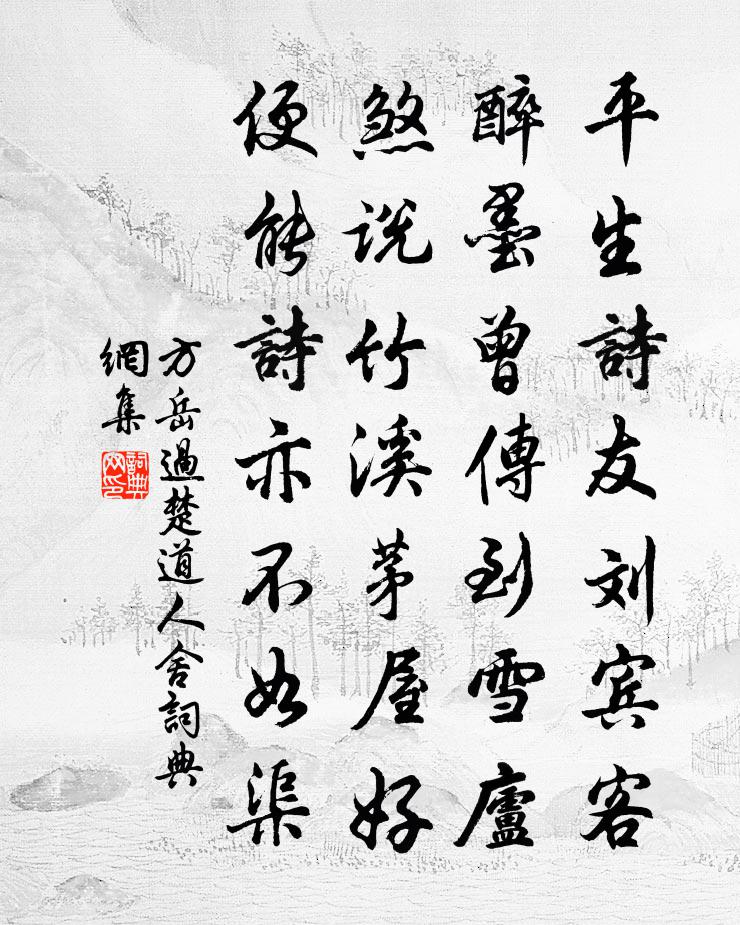 平生詩友刘宾客
醉墨曾傳到雪廬
煞説竹溪茅屋好
便能詩亦不如渠
方岳過楚道人舍詞典
網集
詞典网印